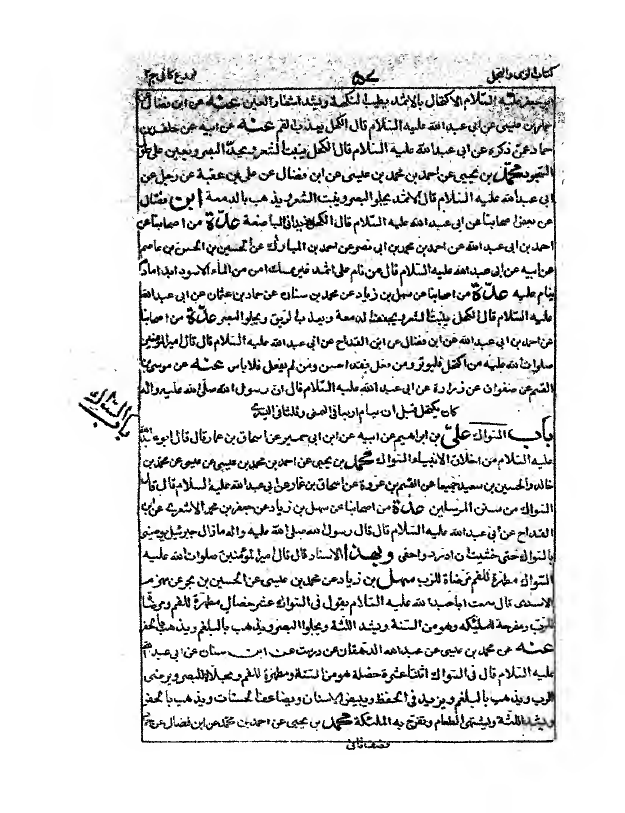 كتاب الزى والتجمل
فروع كافى ج٢
عليه السلام قال الاكتحال بالاثمد يطيب النكهة ويشد اشفار العين عنه عن ابن فضال عن
عيسى عن ابى عبدالله عليه السلام قال الكحل يعذب الفم عنه عن ابيه عن خلف بن
حماد عن ذكره عن ابى عبدالله عليه السلام قال الكحل ينبت الشعر ويحد البصر ويعين على طول
السجود محمد بن يحيى عن احمد بن محمد بن عيسى عن ابن فضال عن على بن عقبة عن رجل عن
ابى عبدالله عليه السلام قال الاثمد يجلو البصر وينبت الشعر ويذهب بالدمعة ابن فضال
عن بعض اصحابنا عن ابى عبدالله عليه السلام قال الكحل يزيد فى المباضعة عدة من اصحابنا عن
احمد بن ابى عبدالله عن احمد بن محمد بن ابى نصر عن احمد بن المبارك عن الحسين بن الحسن بن عاصم
عن ابيه عن ابى عبدالله عليه السلام قال من نام على اثمد غير ممسك امن من الماء الاسود ابدا مادام
ينام عليه عدة من اصحابنا عن سهل بن زياد عن محمد بن سنان عن حماد بن عثمان عن ابى عبدالله
عليه السلام قال الكحل ينبت الشعر ويجفف الدمعة ويعذب الريق ويجلو البصر عدة من اصحابنا
عن احمد بن ابى عبدالله عن ابن فضال عن ابن القداح عن ابى عبدالله عليه السلام قال قال اميرالمؤمنين
صلوات الله عليه من اكتحل فليوتر ومن فعل فقد احسن ومن لم يفعل فلا باس عنه عن موسى بن
القسم عن صفوان عن زرارة عن ابى عبدالله عليه السلام قال ان رسول الله صلى الله عليه واله
كان يكتحل قبل ان ينام اربعا فى اليمنى وثلاثا فى اليسرى
باب السواك
باب السواك على بن ابراهيم عن ابيه عن ابن ابى عمير عن اسحاق بن عمار قال قال ابو عبدالله
عليه السلام من اخلاق الانبياء السواك محمد بن يحيى عن احمد بن محمد بن عيسى عن محمد بن
خالد والحسين بن سعيد جميعا عن القسم بن عروة عن اسحاق بن عمار عن ابى عبدالله عليه السلام قال قال
السواك من سنن المرسلين عدة من اصحابنا عن سهل بن زياد عن جعفر بن محمد الاشعرى عن ابن
القداح عن ابى عبدالله عليه السلام قال قال رسول الله صلى الله عليه واله ما زال جبرئيل يوصينى
بالسواك حتى خشيت ان ادرد واحفى وبهذا الاسناد قال قال اميرالمؤمنين صلوات الله عليه
السواك مطهرة للفم مرضاة للرب سهل بن زياد عن محمد بن عيسى عن الحسين بن بحر عن مهزم
الاسدى قال سمعت ابا عبدالله عليه السلام يقول فى السواك عشر خصال مطهرة للفم ومرضاة
للرب ومفرحة للملئكة وهو من السنة ويشد اللثة ويجلوا البصر ويذهب بالبلغم ويذهب بالحفر
عنه عن محمد بن عيسى عن عبيدالله الدهقان عن درست عن ابن سنان عن ابى عبدالله
عليه السلام قال فى السواك اثنتا عشرة خصلة هو من السنة ومطهرة للفم ومجلاة للبصر ويرضى
الرب ويذهب بالبلغم ويزيد فى الحفظ ويبيض الاسنان ويضاعف الحسنات ويذهب بالحفر
ويشد اللثة ويشهى الطعام وتفرح به الملئكة محمد بن يحيى عن احمد بن محمد عن ابن فضال عن